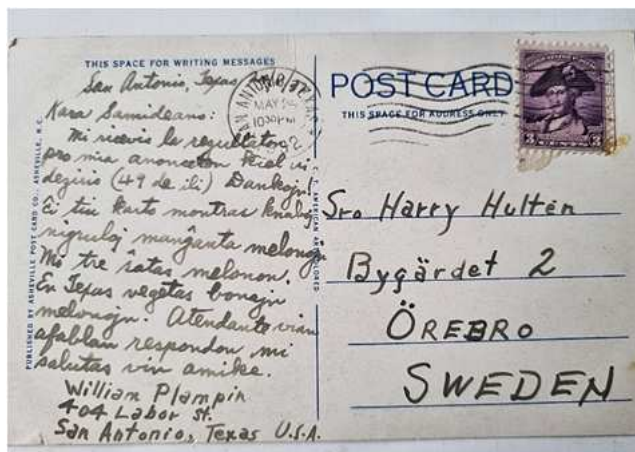 THIS SPACE FOR WRITING MESSAGES
San Antonio, Texas
Kara Samideano:
Mi ricevis la rezultaton
pro mia anonceton kiel vi
deziris (49 da ili) Dankojn!
Ĉi tiu karto montras knaboj
nigruloj manĝanta melonojn
Mi tre ŝatas melonon.
En Texas vegetas bonajn
melonojn. Atendante vian
afablan respondon, mi
salutas vin amike.
William Plampin
404 Labor St.
San Antonio, Texas U.S.A.
PUBLISHED BY ASHEVILLE POST CARD CO., ASHEVILLE, N.C.
C. T. AMERICAN ART COLORED
SAN ANTONIO, TEXAS
MAY
1030PM
POST CARD
THIS SPACE FOR ADDRESS ONLY
3 3
Sro Harry Hultén
Bygärdet 2
ÖREBRO
SWEDEN